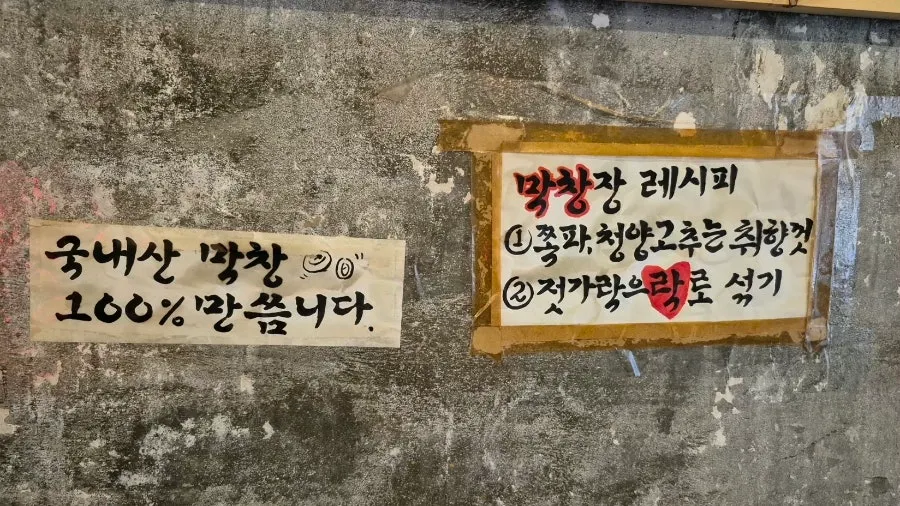 국내산 막창
100% 만 씁니다.
막창장 레시피
① 쪽파, 청양고추는 취향껏
② 젓가락으락로 섞기